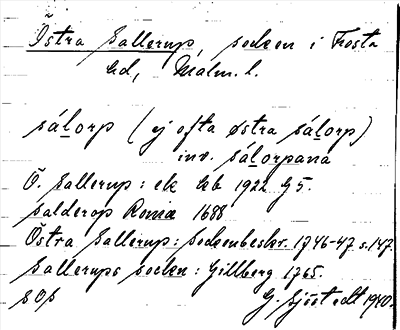 Östra Sallerup, socken i Frosta
hd, Malm. l.
sáḷorp (ej ofta østra sáḷorp)
inv. sáḷorpana
Ö. Sallerup: ek kb 1922 G 5.
Salderop Roma 1688
Östra Sallerup: Sockenbeskr. 1746-47 s. 147
Sallerups socken: Gillberg 1765.
G. Sjöstedt 1940.